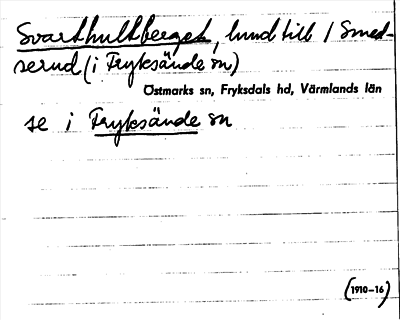 Svarthultberget, hund till 1 Smed-
serud (i Fryksände sn)
Östmarks sn, Fryksdals hd, Värmlands län
se i Fryksände sn
(1910–16)